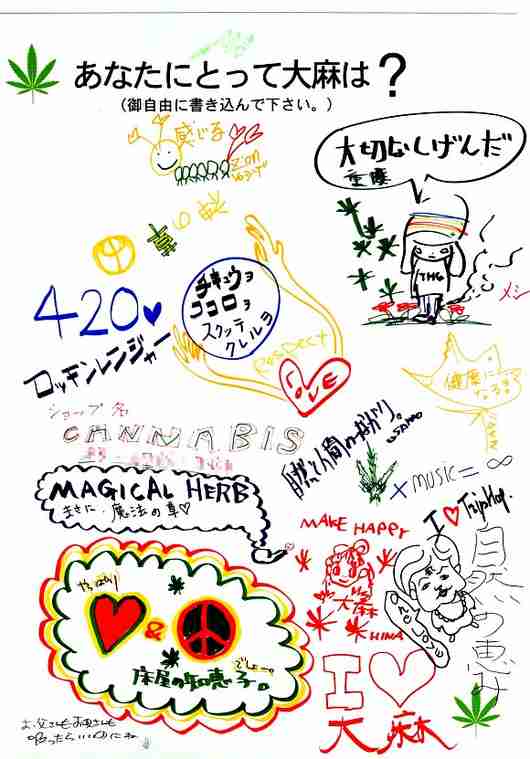 あなたにとって大麻は？
（御自由に書き込んで下さい。）
感じる
大切なしげんだ
重慶
THG
420
チキュウヲ
ココロヲ
スクッテ
クレルヨ
Respect
LOVE
ロッキンレンジャー
健康に
なる!!
ショップ名
CANNABIS
自然と人間のつながり。
× MUSIC = ∞
MAGICAL HERB
まさに、魔法の草♡
I ♥ TripHop.
MAKE HAPPY
大麻
HINA
自然の恵み
やっぱり
&
でしょー。
床屋の知恵子。
I ♡
大麻
お父さんもお母さんも
吸ったらいいのにね